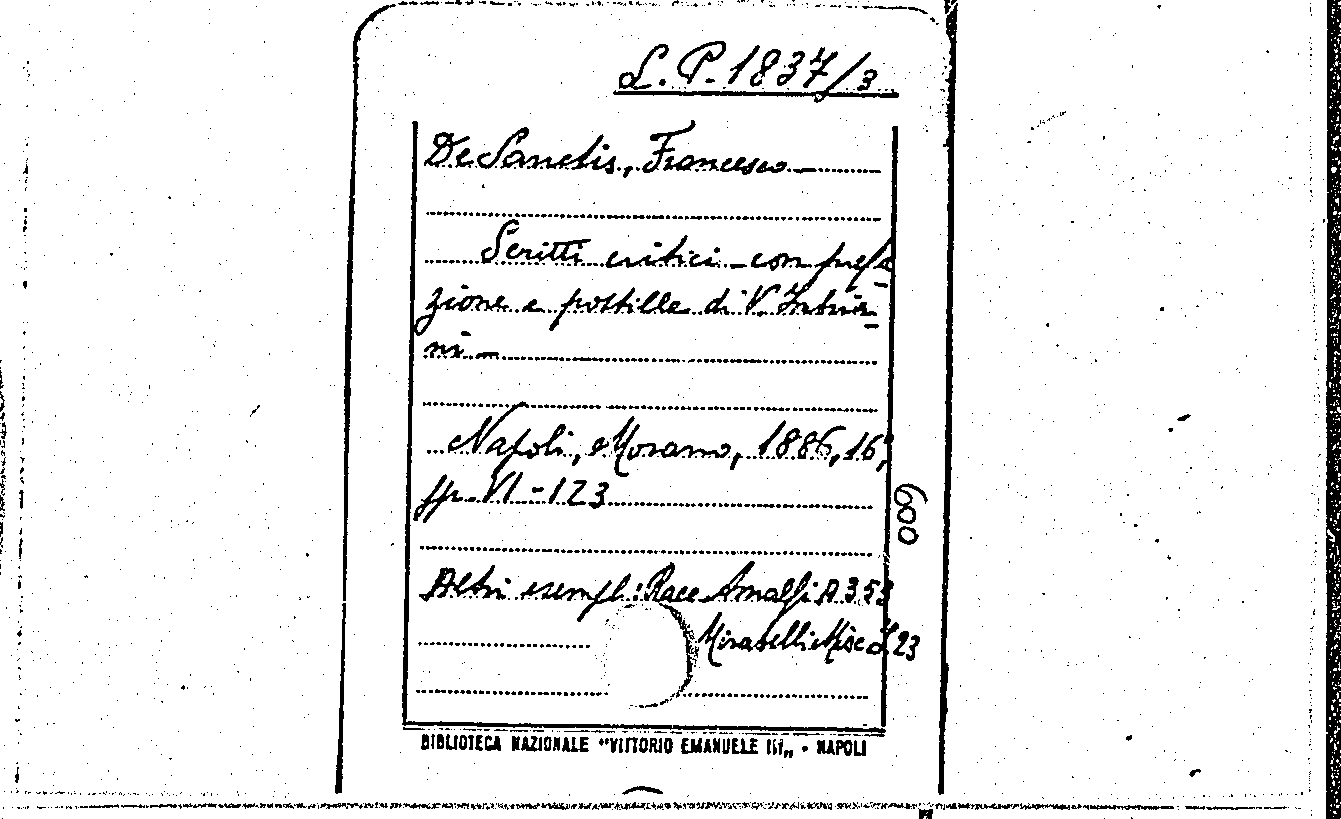 L.P. 1837/3
De Sanctis, Francesco
Scritti critici - con prefa-
zione e postille di V. Imbria-
ni -
Napoli, Morano, 1886, 16°,
pp. VI - 123
Altri esempl: Racc. Amalfi A 353
Mirabelli Misc 23
600
BIBLIOTECA NAZIONALE "VITTORIO EMANUELE III„ - NAPOLI